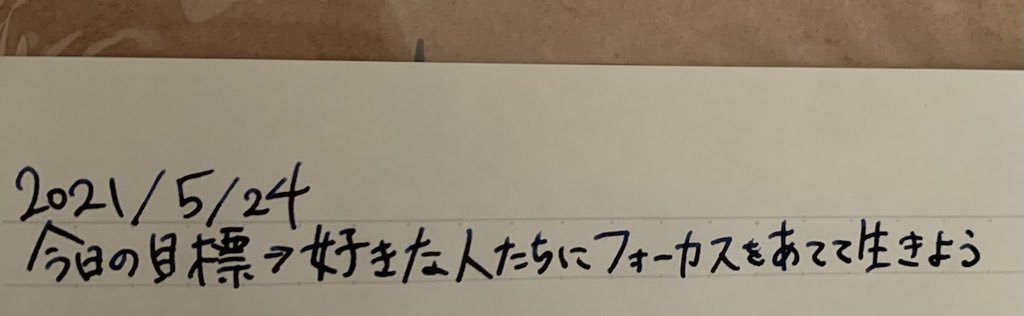 2021/5/24
今日の目標→好きな人たちにフォーカスをあてて生きよう